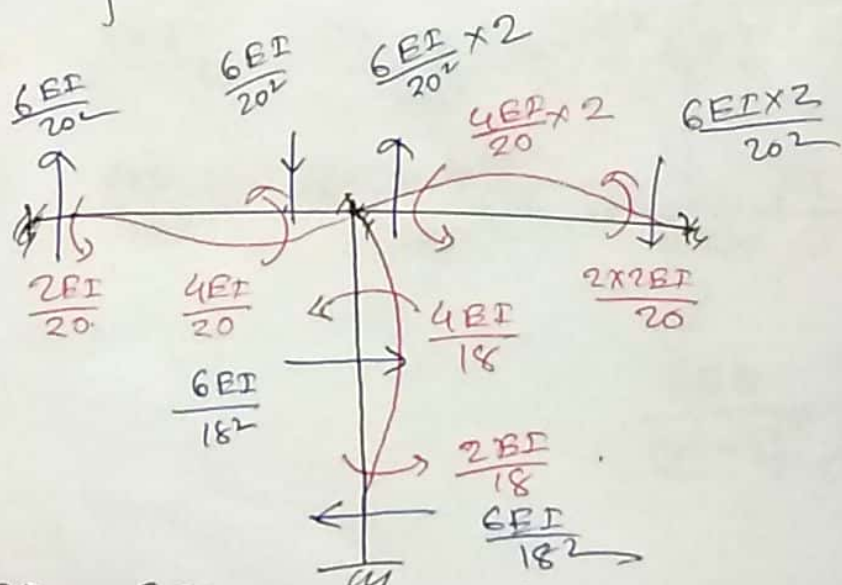 6EI/20²
6EI/20²
6EI/20² × 2
4EI/20 × 2
6EI×2/20²
2EI/20
4EI/20
2×2EI/20
4EI/18
6EI/18²
2EI/18
6EI/18²